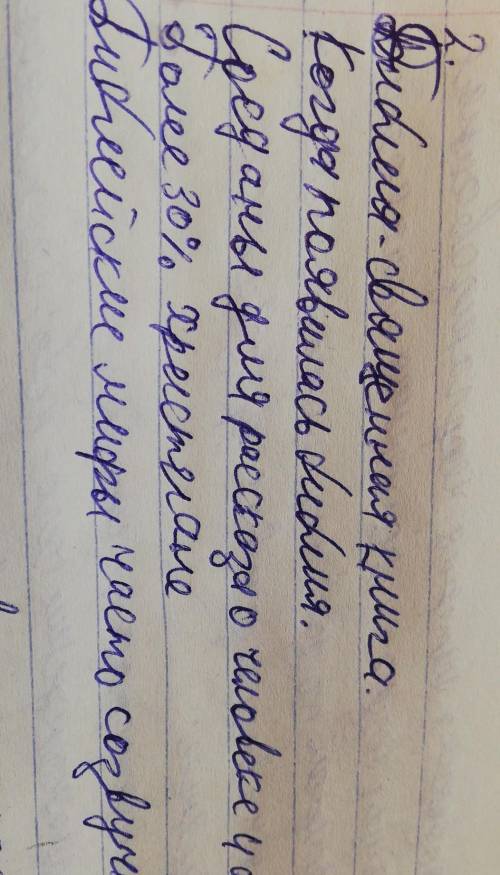 2.
Библия - священная книга.
Когда появилась библия.
Созданы для рассказа о человеке и
Более 30% христяане
Библейские мифы часто созвучн